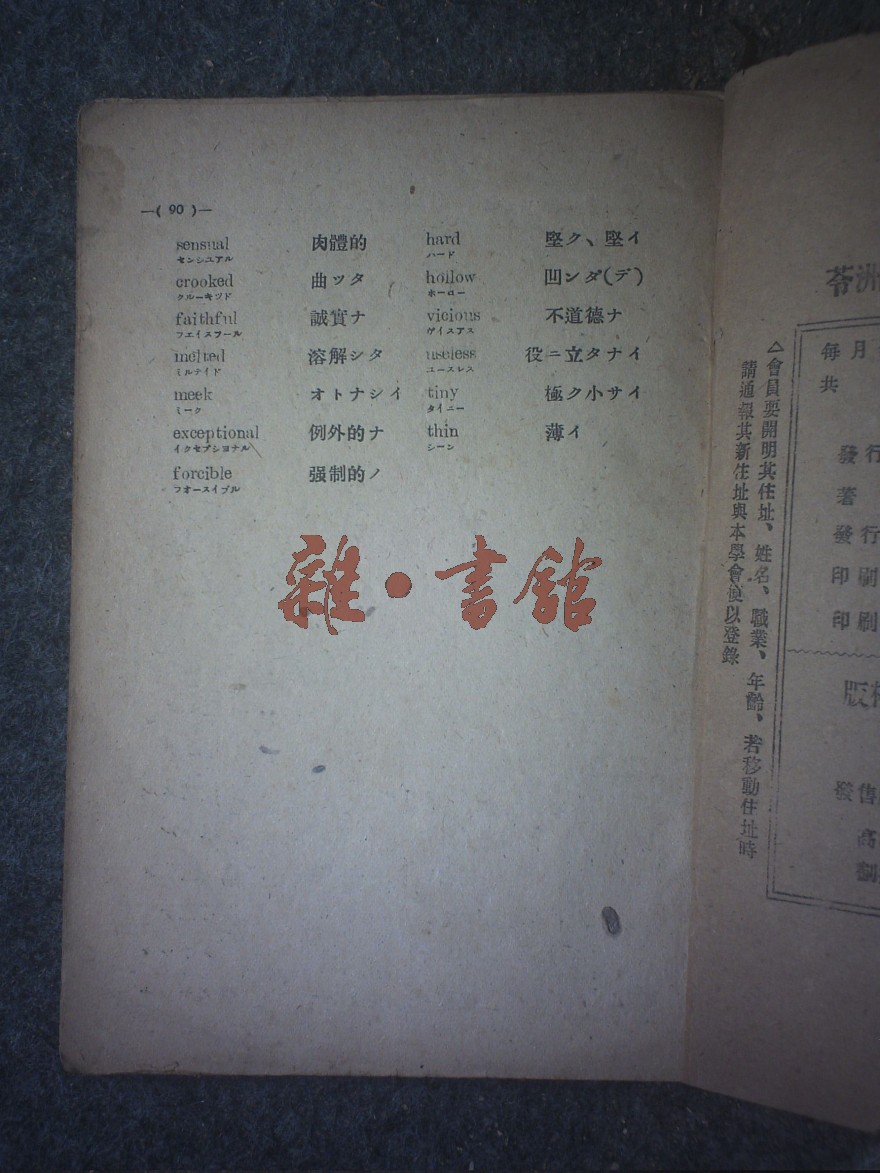 —( 90 )—
sensual 肉體的 hard 堅ク、堅イ
センシユアル ハード
crooked 曲ツタ hollow 凹ンダ(デ)
クルーキツド ホーロー
faithful 誠實ナ vicious 不道德ナ
フエイスフール ヴイスアス
melted 溶解シタ useless 役ニ立タナイ
ミルテイド ユースレス
meek オトナシイ tiny 極ク小サイ
ミーク タイニー
exceptional 例外的ナ thin 薄イ
イクセプシヨナル シーン
forcible 强制的ノ
フオースイブル
雜·書館
△會員要開明其住址、姓名、職業、年齡、若移動住址時
請通報其新住址與本學會便以登錄
苓洲
每月
共
發行
著
發行
印刷
印刷
版權
發售
高